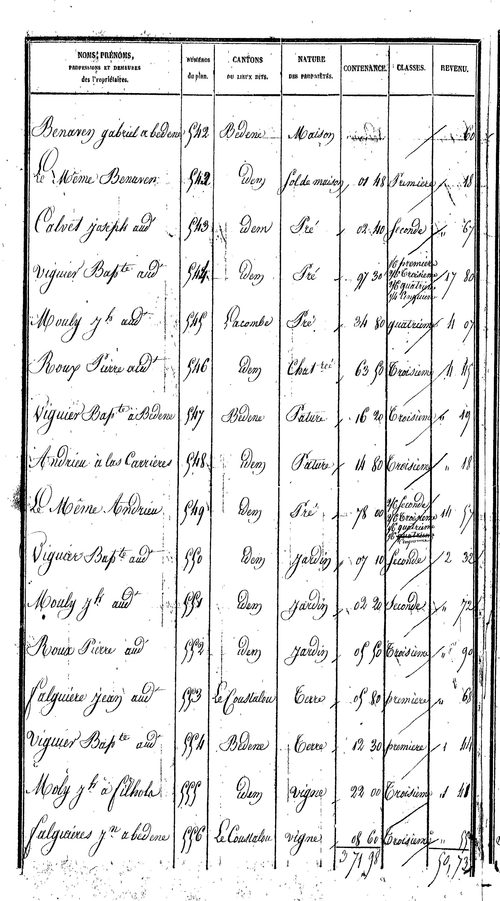 NOMS, PRÉNOMS, PROFESSIONS ET DEMEURES des Propriétaires. NUMÉROS du plan. CANTONS OU LIEUX DITS. NATURE DES PROPRIÉTÉS. CONTENANCE. CLASSES. REVENU.
Benaven gabriel a bedene 542 Bedene Maison 60
Le Même Benaven 542 idem Sol de maison 01 48 Premiere 18
Calvet joseph audt 543 idem Pré 02 40 Seconde " 67
Viguier Bapte audt 544 idem Pré 97 30 premiere troisieme quatrieme 17 80
Mouly jh audt 545 Lacombe Pré 34 80 quatrieme 4 07
Roux Pierre audt 546 idem 63 50 Troisieme 4 45
Viguier Bapte à Bedene 547 Bedene Pature 16 20 Troisieme " 19
Andrieu à las Carrieres 548 idem Pature 14 80 Troisieme " 18
Le Même Andrieu 549 idem Pré 78 00 Seconde Troisieme quatrieme 14 57
Viguier Bapte audt 550 idem jardin 07 10 Seconde 2 32
Mouly jh audt 551 idem jardin 02 20 Seconde " 72
Roux Pierre audt 552 idem jardin 05 50 Troisieme " 90
falguiere jean audt 553 Le Coustalou Terre 05 80 premiere " 68
Viguier Bapte audt 554 Bedene Terre 12 30 premiere 1 44
Moly jh à filhols 555 idem vigne 22 00 Troisieme 1 41
falguieres jn a bedene 556 Le Coustalou vigne 08 60 Troisieme " 55
3 71 98 50,73